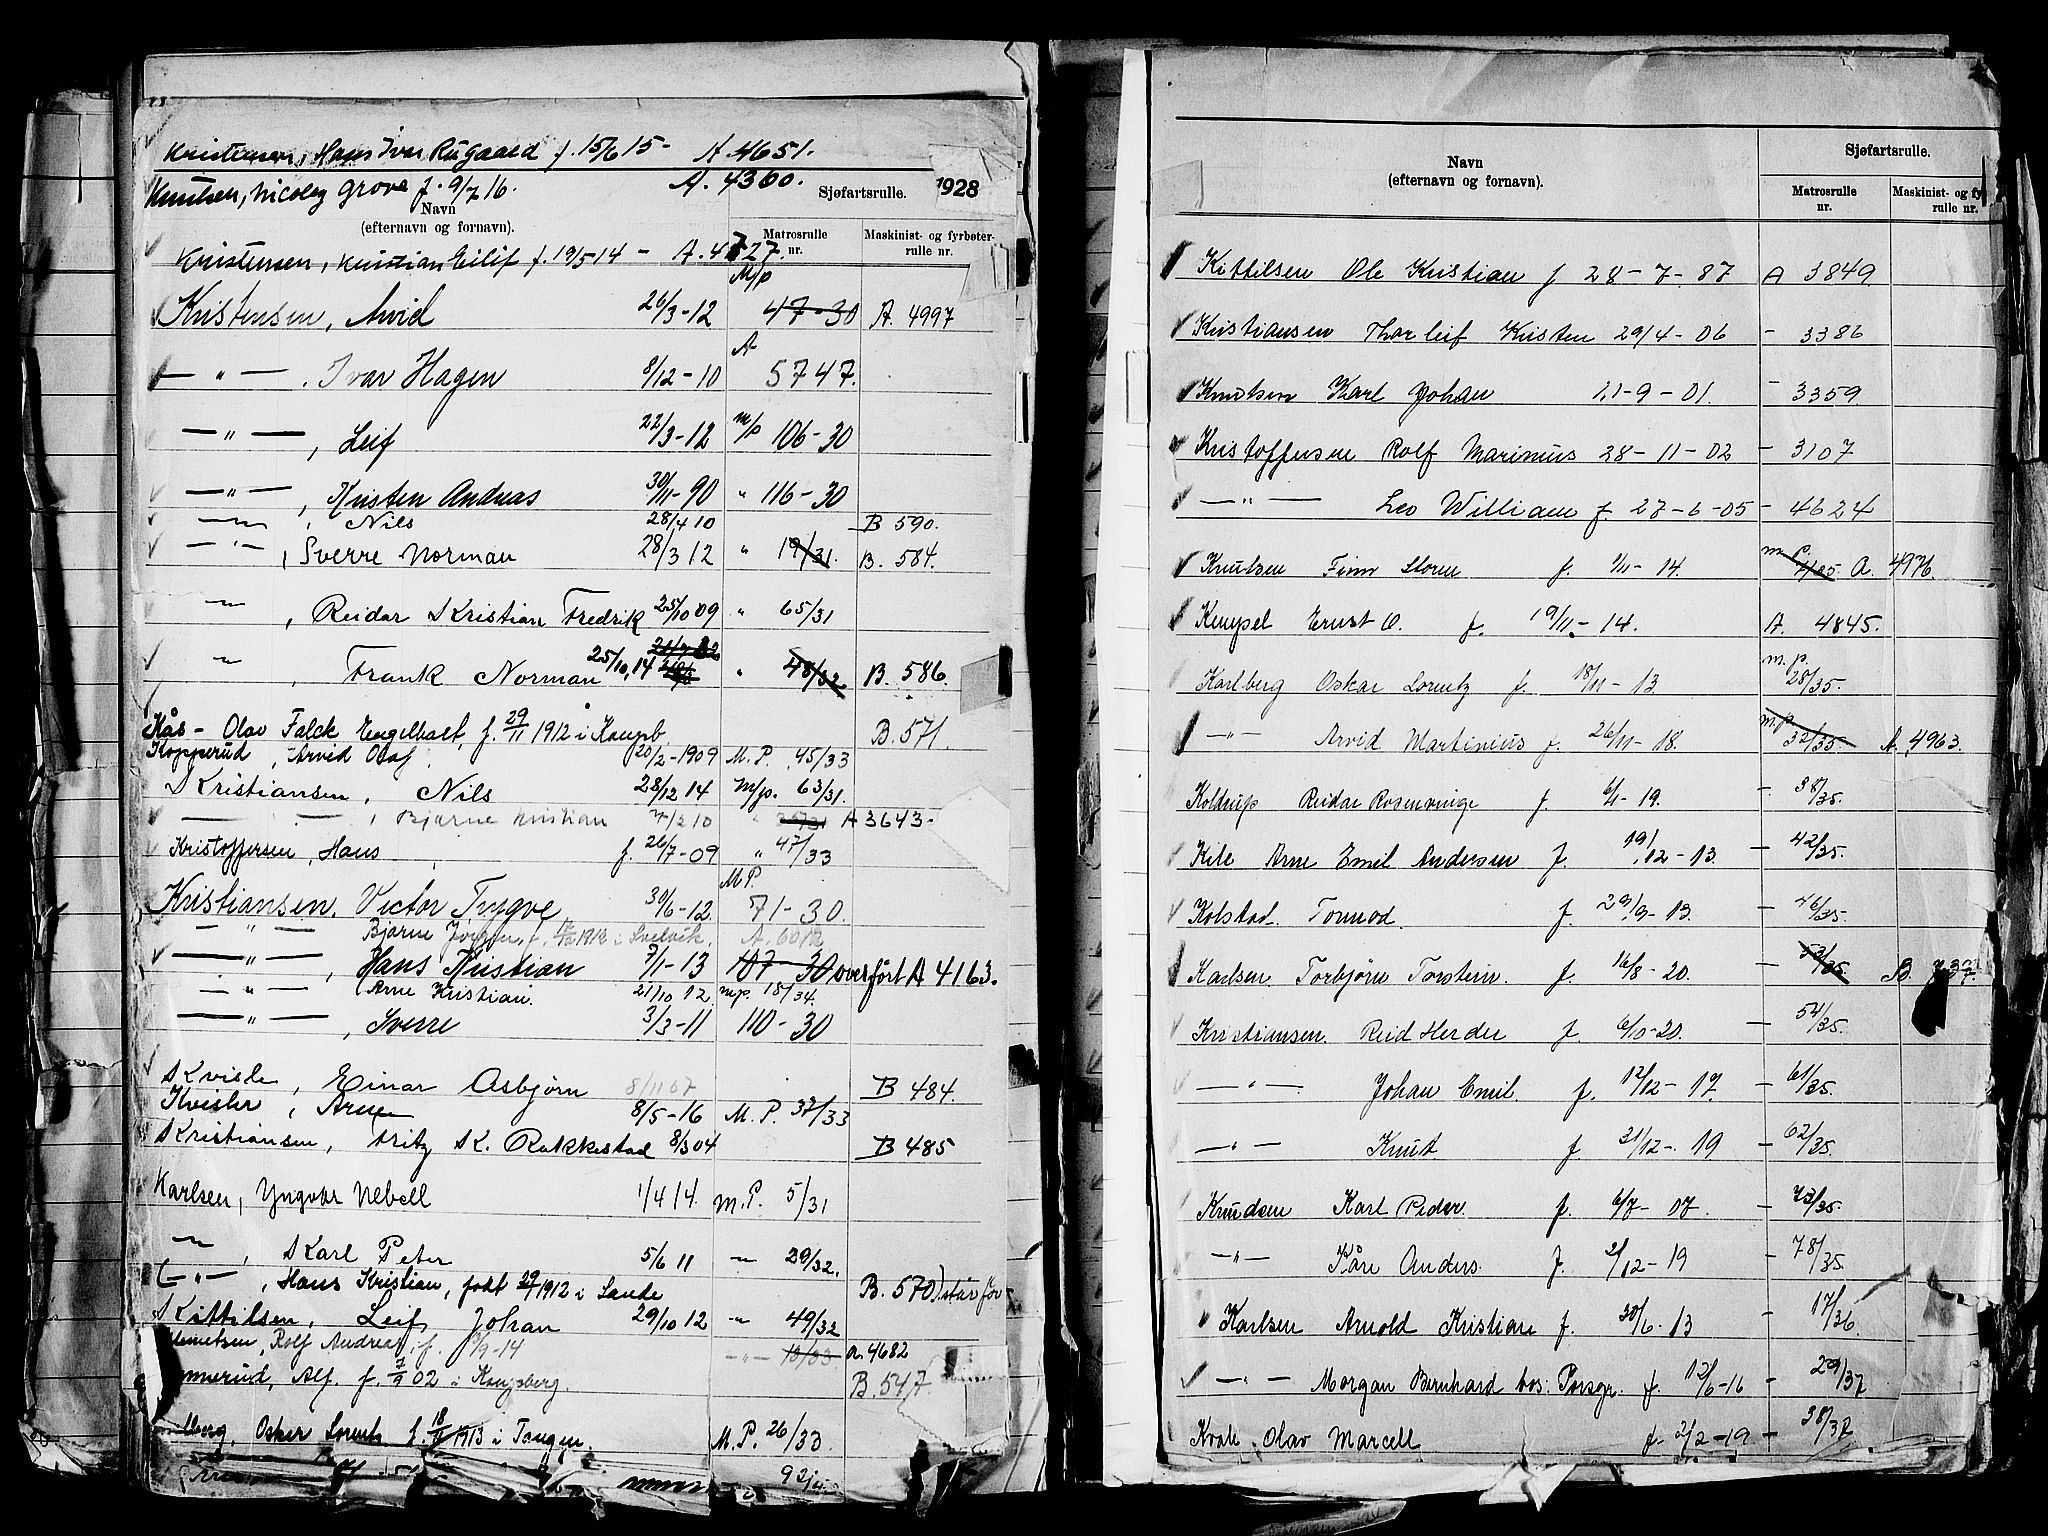 Kristensen, Hans Ivar Rugaard f. 15/6 15 - A. 4651.
Knutsen, Nicolay Grove f. 9/7 16. A. 4360.
Sjøfartsrulle. 1928
Navn
(efternavn og fornavn).
Matrosrulle nr.
Maskinist- og fyrbøter-rulle nr.
Kristensen, Kristian Eilif f. 19/5-14 - A. 4727.
Kristensen, Arvid 26/3-12 M/p 47-30 A. 4997
— " — , Ivar Hagen 8/12-10 A 5747.
— " — , Leif 22/3-12 m/p 106-30
— " — , Kristen Andreas 30/11-90 " 116-30
— " — , Nils 28/4 10 B 590.
— " — , Sverre Norman 28/3 12 " 19/31. B. 584.
— " — , Reidar Kristian Fredrik 25/10 09 " 65/31
" , Frank Norman 25/10, 14 " 48/32 B. 586.
Kås - Olav Falck Engelbart, f. 29/11 1912 i B. 571.
Kopperud, Arvid Olaf 20/2-1909 M.P. 45/33
Kristiansen, Nils 28/12 14 M/p. 63/31.
— " — , Bjarne Kristian /2 10 A 3643-
Kristoffersen, Hans f. 26/7-09 " 47/33
Kristiansen, Victor Trygve 30/6-12 M.P. 71-30.
— " — Bjarne Jørgen, f. 1912 i Svelvik. A. 6012
— " — , Hans Kristian 7/1-13 107-30 overført A 4163.
— " — Arne Kristian. 21/10 12. m/p. 18/34.
— " — , Sverre 3/3-11 110-30
Kvisle, Einar Asbjørn 8/11 07 B 484.
Kvisler, Arne 8/5-16 M.P. 37/33
Kristiansen, Fritz K. Rakkestad 8/3 04 B 485
Karlsen, Yngvar Nebell 1/4 14. m.P. 5/31
" , Karl Peter 5/6 11 " 29/32.
(— " — , Hans Kristian, født 29/ 1912 i Sande B. 570) står for
Kittilsen, Leif Johan 29/10 12 " 49/32
Rolf Andreas, f. /9-14 — " — 13/33. A. 4682
nnerud, Alf. f. 7/9 02 i Kongsberg. B. 547
lberg, Oskar Lorentz f. 18/11 1913 i Tangen. M.P. 26/33
Navn
(efternavn og fornavn).
Sjøfartsrulle.
Matrosrulle nr.
Maskinist- og fy
rulle nr.
Kittilsen Ole Kristian f 28-7-87 A 3849
Kristiansen Thorleif Kristen 29/4-06 - 3386
Knutsen Karl Johan 11-9-01. - 3359
Kristoffersen Rolf Marinius 28-11-02 - 3107
— " — Leo William f. 27-6-05 - 4624
Knutsen Finn Storm f. 1/11-14. m.p. 4/35. A. 4976.
Kempel Ernst O. f. 19/11-14. A. 4845.
Karlberg Oskar Lorentz f. 18/11-13. m.p. 28/35.
— " — Arvid Martinius f. 26/11-18. m.p. 32/35. A. 4963.
Koltrup Reidar Rosenvinge f. 6/1-19. - 38/35.
Kile Arne Emil Andersen f. 19/12-13. - 42/35.
Kolstad. Tormod. f. 29/9-13. - 46/35.
Karlsen Torbjørn Torstein. f. 16/8-20. 53/35. B.
Kristiansen. Reid Herder f. 6/10-20. - 54/35.
— " — Johan Emil f. 12/12-17. - 61/35.
— " — Knut. f. 31/12-19 - 62/35.
Knudsen Karl Peder. f. 6/7-07. - 73/35.
— " — Kåre Anders. f. 2/12-19 - 78/35.
Karlsen Arnold Kristian f. 30/6-13 - 17/36.
— " — Morgan Bernhard bos. Porsgr. f. 12/6-16 - 29/37
Kvale, Olav Marcell f. 2/2-19 - 38/37